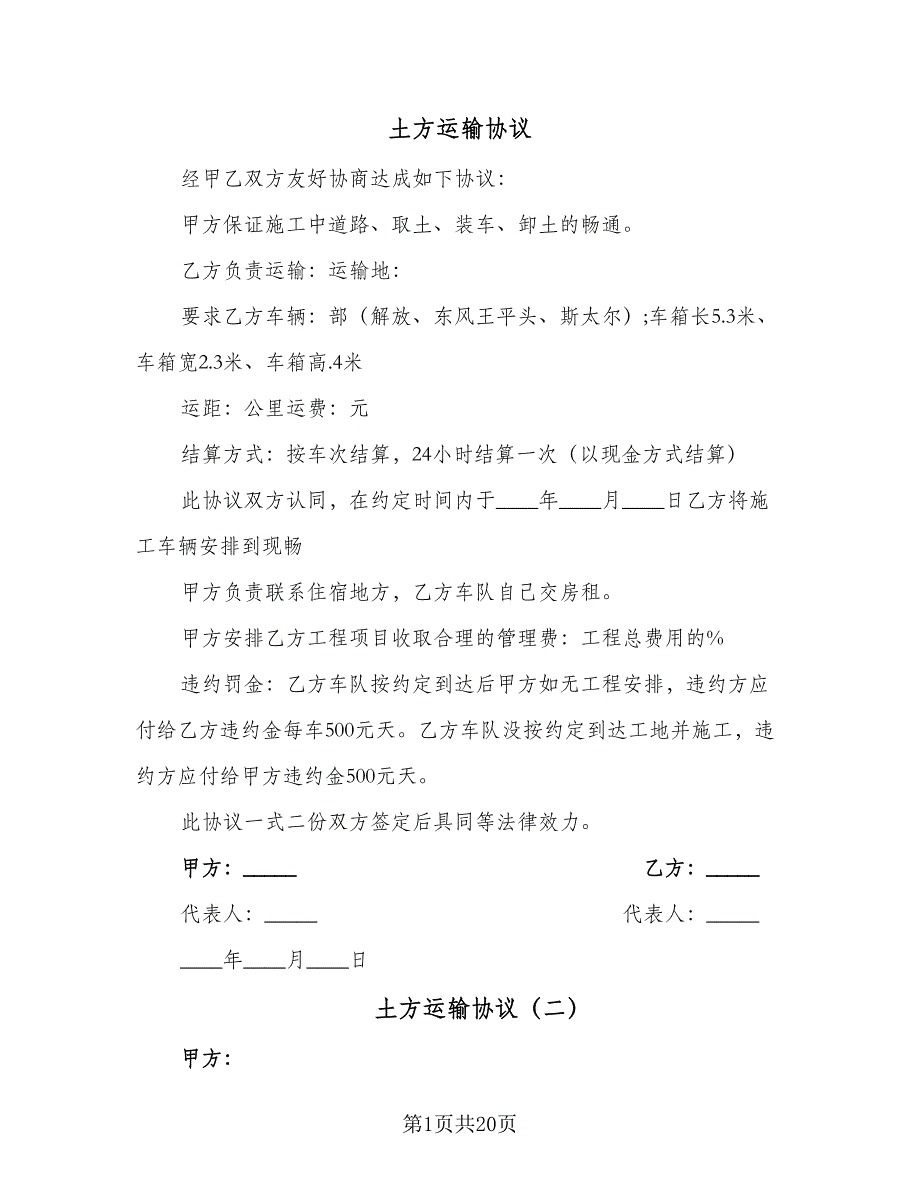 土方运输协议
经甲乙双方友好协商达成如下协议：
甲方保证施工中道路、取土、装车、卸土的畅通。
乙方负责运输：运输地：
要求乙方车辆：部（解放、东风王平头、斯太尔）;车箱长5.3米、
车箱宽2.3米、车箱高.4米
运距：公里运费：元
结算方式：按车次结算，24小时结算一次（以现金方式结算）
此协议双方认同，在约定时间内于____年____月____日乙方将施
工车辆安排到现畅
甲方负责联系住宿地方，乙方车队自己交房租。
甲方安排乙方工程项目收取合理的管理费：工程总费用的%
违约罚金：乙方车队按约定到达后甲方如无工程安排，违约方应
付给乙方违约金每车500元天。乙方车队没按约定到达工地并施工，违
约方应付给甲方违约金500元天。
此协议一式二份双方签定后具同等法律效力。
甲方：_____ 乙方：_____
代表人：_____ 代表人：_____
____年____月____日
土方运输协议（二）
甲方：
第1页共20页